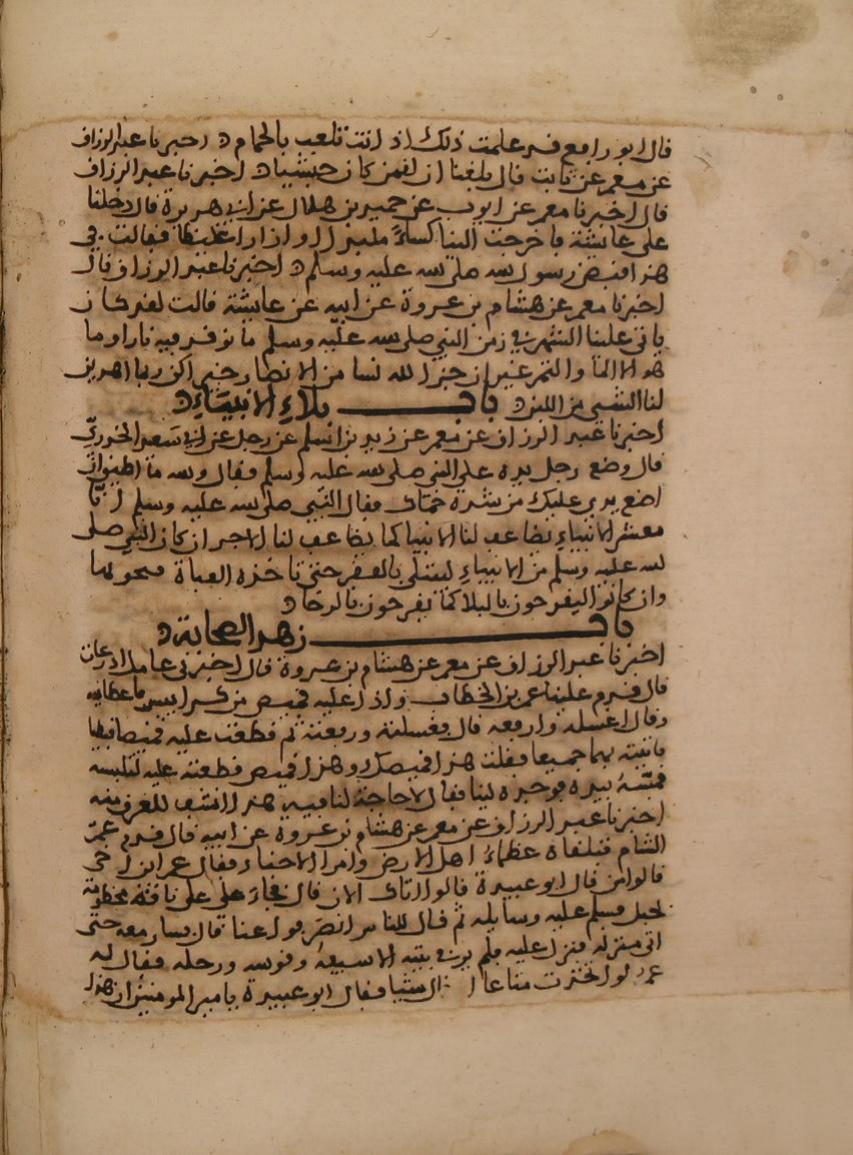 قال ابو رافع قد علمت ذلك اذ انت تلعب بالحمام اخبرنا عبد الرزاق
عن معمر عن ثابت قال بلغنا ان لقمن كان حبشيا اخبرنا عبد الرزاق
قال اخبرنا معمر عن ايوب عن حميد بن هلال عن ابي هريرة قال دخلنا
على عايشة فاخرجت الينا كساء ملبدا وازارا غليظا فقالت في
هذا قبض رسول الله صلى الله عليه وسلم اخبرنا عبد الرزاق قال
اخبرنا معمر عن هشام بن عروة عن ابيه عن عايشة قالت لقد كان
ياتي علينا الشهر في زمن النبي صلى الله عليه وسلم ما نوقد فيه نارا وما
هو الا الما والتمر غير ان جزا الله نسا من الانصار خيرا كن ربما اهدين
لنا الشي من اللبن باب بلاء الانبياء
اخبرنا عبد الرزاق عن معمر عن زيد بن اسلم عن رجل عن ابي سعيد الخدري
قال وضع رجل يده على النبي صلى الله عليه وسلم فقال والله ما اطيق ان
اضع يدي عليك من شدة حماك فقال النبي صلى الله عليه وسلم انا
معشر الانبياء يضاعف لنا الانبيا كما يضاعف لنا الاجر ان كان النبي صلى
الله عليه وسلم من الانبياء ليبتلى بالفقر حتى تاخذه العباة فيحولها
وان كانوا ليفرحون بالبلا كما يفرحون بالرخا
باب زهد الصحابة
اخبرنا عبد الرزاق عن معمر عن هشام بن عروة قال اخبرني عامل اذرعات
قال قدم علينا عمر بن الخطاب واذا عليه قميص من كرابيس فاعطانيه
وقال اغسله وارقعه قال فغسلته ورقعته ثم قطعت عليه قميصا
فاتيته بهما جميعا فقلت هذا قميصك وهذا قميص قطعته عليه لتلبسه
فمسه بيده فوجده لينا فقال لا حاجة لنا فيه هذا انشف للعرق منه
اخبرنا عبد الرزاق عن معمر عن هشام بن عروة عن ابيه قال قدم عمر
الشام فتلقاه عظماء اهل الارض وامرا الاجناد فقال عمر اين اخي
قالوا من قال ابو عبيدة قالوا اتاك الان قال فجاء على ناقة مخطومة
بحبل فسلم عليه وسايله ثم قال للناس انصرفوا عنا قال فسار معه حتى
اتى منزله فنزل عليه فلم ير في بيته الا سيفه وقوسه ورحله فقال له
عمر لو اتخذت متاعا او قال شيا فقال ابو عبيدة يا مير المومنين ان هذا